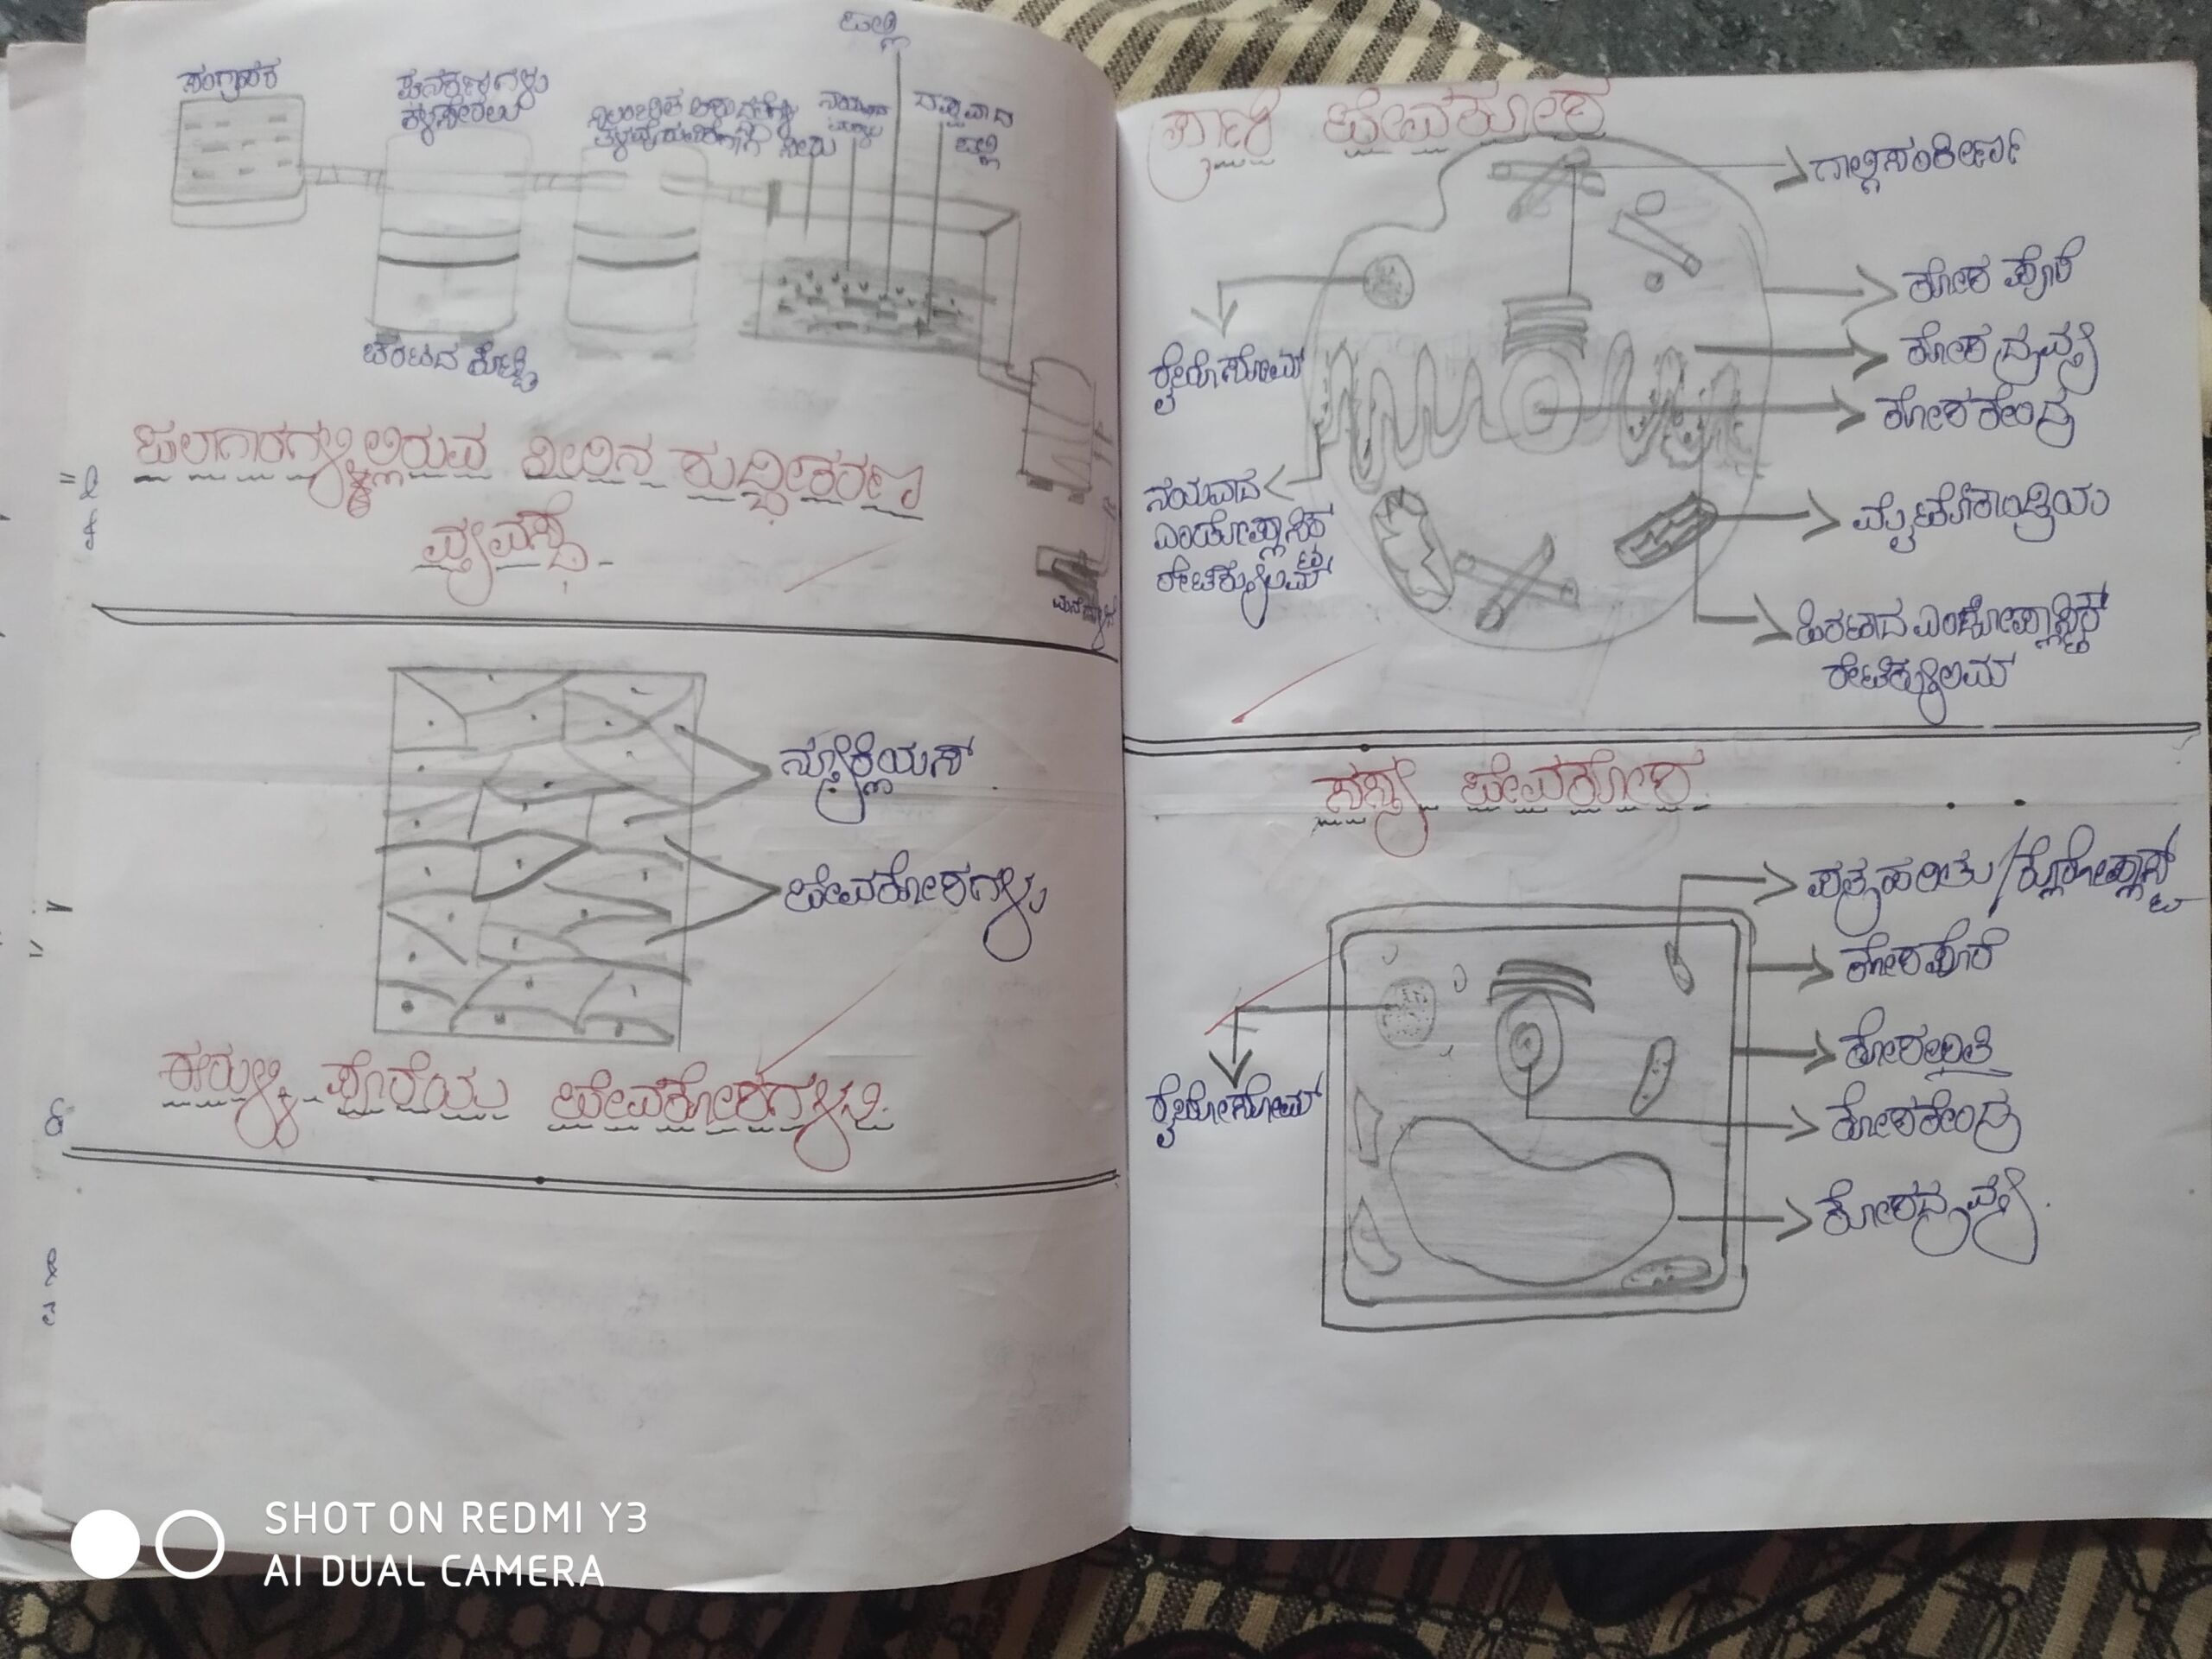 ಸಂಗ್ರಾಹಕ
ಘನಕಣಗಳು
ಕೆಳಸೇರಲು
ನೀರು
ಜಲ್ಲಿ
ದಪ್ಪವಾದ
ಜಲ್ಲಿ
ಚರಟದ ತೊಟ್ಟಿ
ಜಲಾಗಾರಗಳಲ್ಲಿರುವ ನೀರಿನ ಶುದ್ಧೀಕರಣ
ವ್ಯವಸ್ಥೆ
ನ್ಯೂಕ್ಲಿಯಸ್
ಜೀವಕೋಶಗಳು
ಈರುಳ್ಳಿ ಪೊರೆಯ ಜೀವಕೋಶಗಳು
ಪ್ರಾಣಿ ಜೀವಕೋಶ
ಗಾಲ್ಗಿಸಂಕೀರ್ಣ
ಕೋಶ ಪೊರೆ
ಕೋಶ ದ್ರವ್ಯ
ಕೋಶಕೇಂದ್ರ
ಮೈಟೋಕಾಂಡ್ರಿಯ
ಒರಟಾದ ಎಂಡೋಪ್ಲಾಸ್ಮಿಕ್
ರೇಟಿಕ್ಯುಲಮ್
ಲೈಸೋಸೋಮ್
ನಯವಾದ
ಎಂಡೋಪ್ಲಾಸ್ಮಿಕ್
ರೇಟಿಕ್ಯುಲಮ್
ಸಸ್ಯ ಜೀವಕೋಶ
ಪತ್ರಹರಿತು/ಕ್ಲೋರೋಪ್ಲಾಸ್ಟ್
ಕೋಶಪೊರೆ
ಕೋಶಭಿತ್ತಿ
ಕೋಶಕೇಂದ್ರ
ಕೋಶದ್ರವ್ಯ.
ಲೈಸೋಸೋಮ್
SHOT ON REDMI Y3
AI DUAL CAMERA